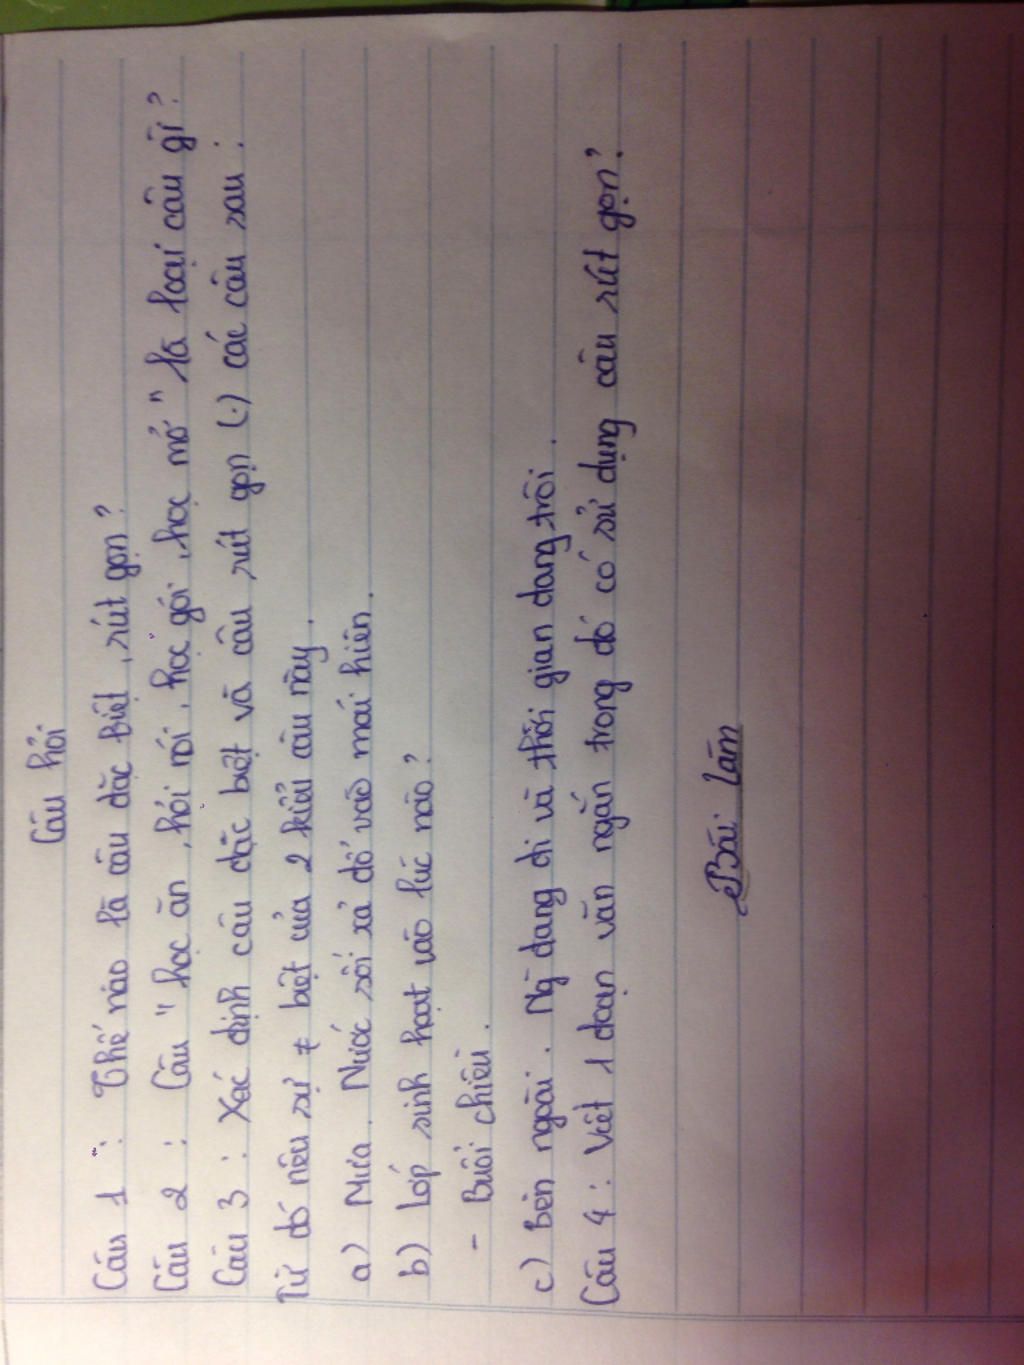 Câu hỏi
Câu 1 : Thế nào là câu đặc biệt, rút gọn?
Câu 2 : Câu "học ăn, hỏi nói, học gói, học mở" là loại câu gì?
Câu 3 : Xác định câu đặc biệt và câu rút gọn (.) các câu sau :
Từ đó nêu sự ≠ biệt của 2 kiểu câu này.
a) Mưa. Nước sối xả đổ vào mái hiên.
b) Lớp sinh hoạt vào lúc nào?
- Buổi chiều.
c) Bên ngoài. Ng̃ đang đi và thời gian đang trôi.
Câu 4 : Viết 1 đoạn văn ngắn trong đó có sử dụng câu rút gọn?
Bài làm